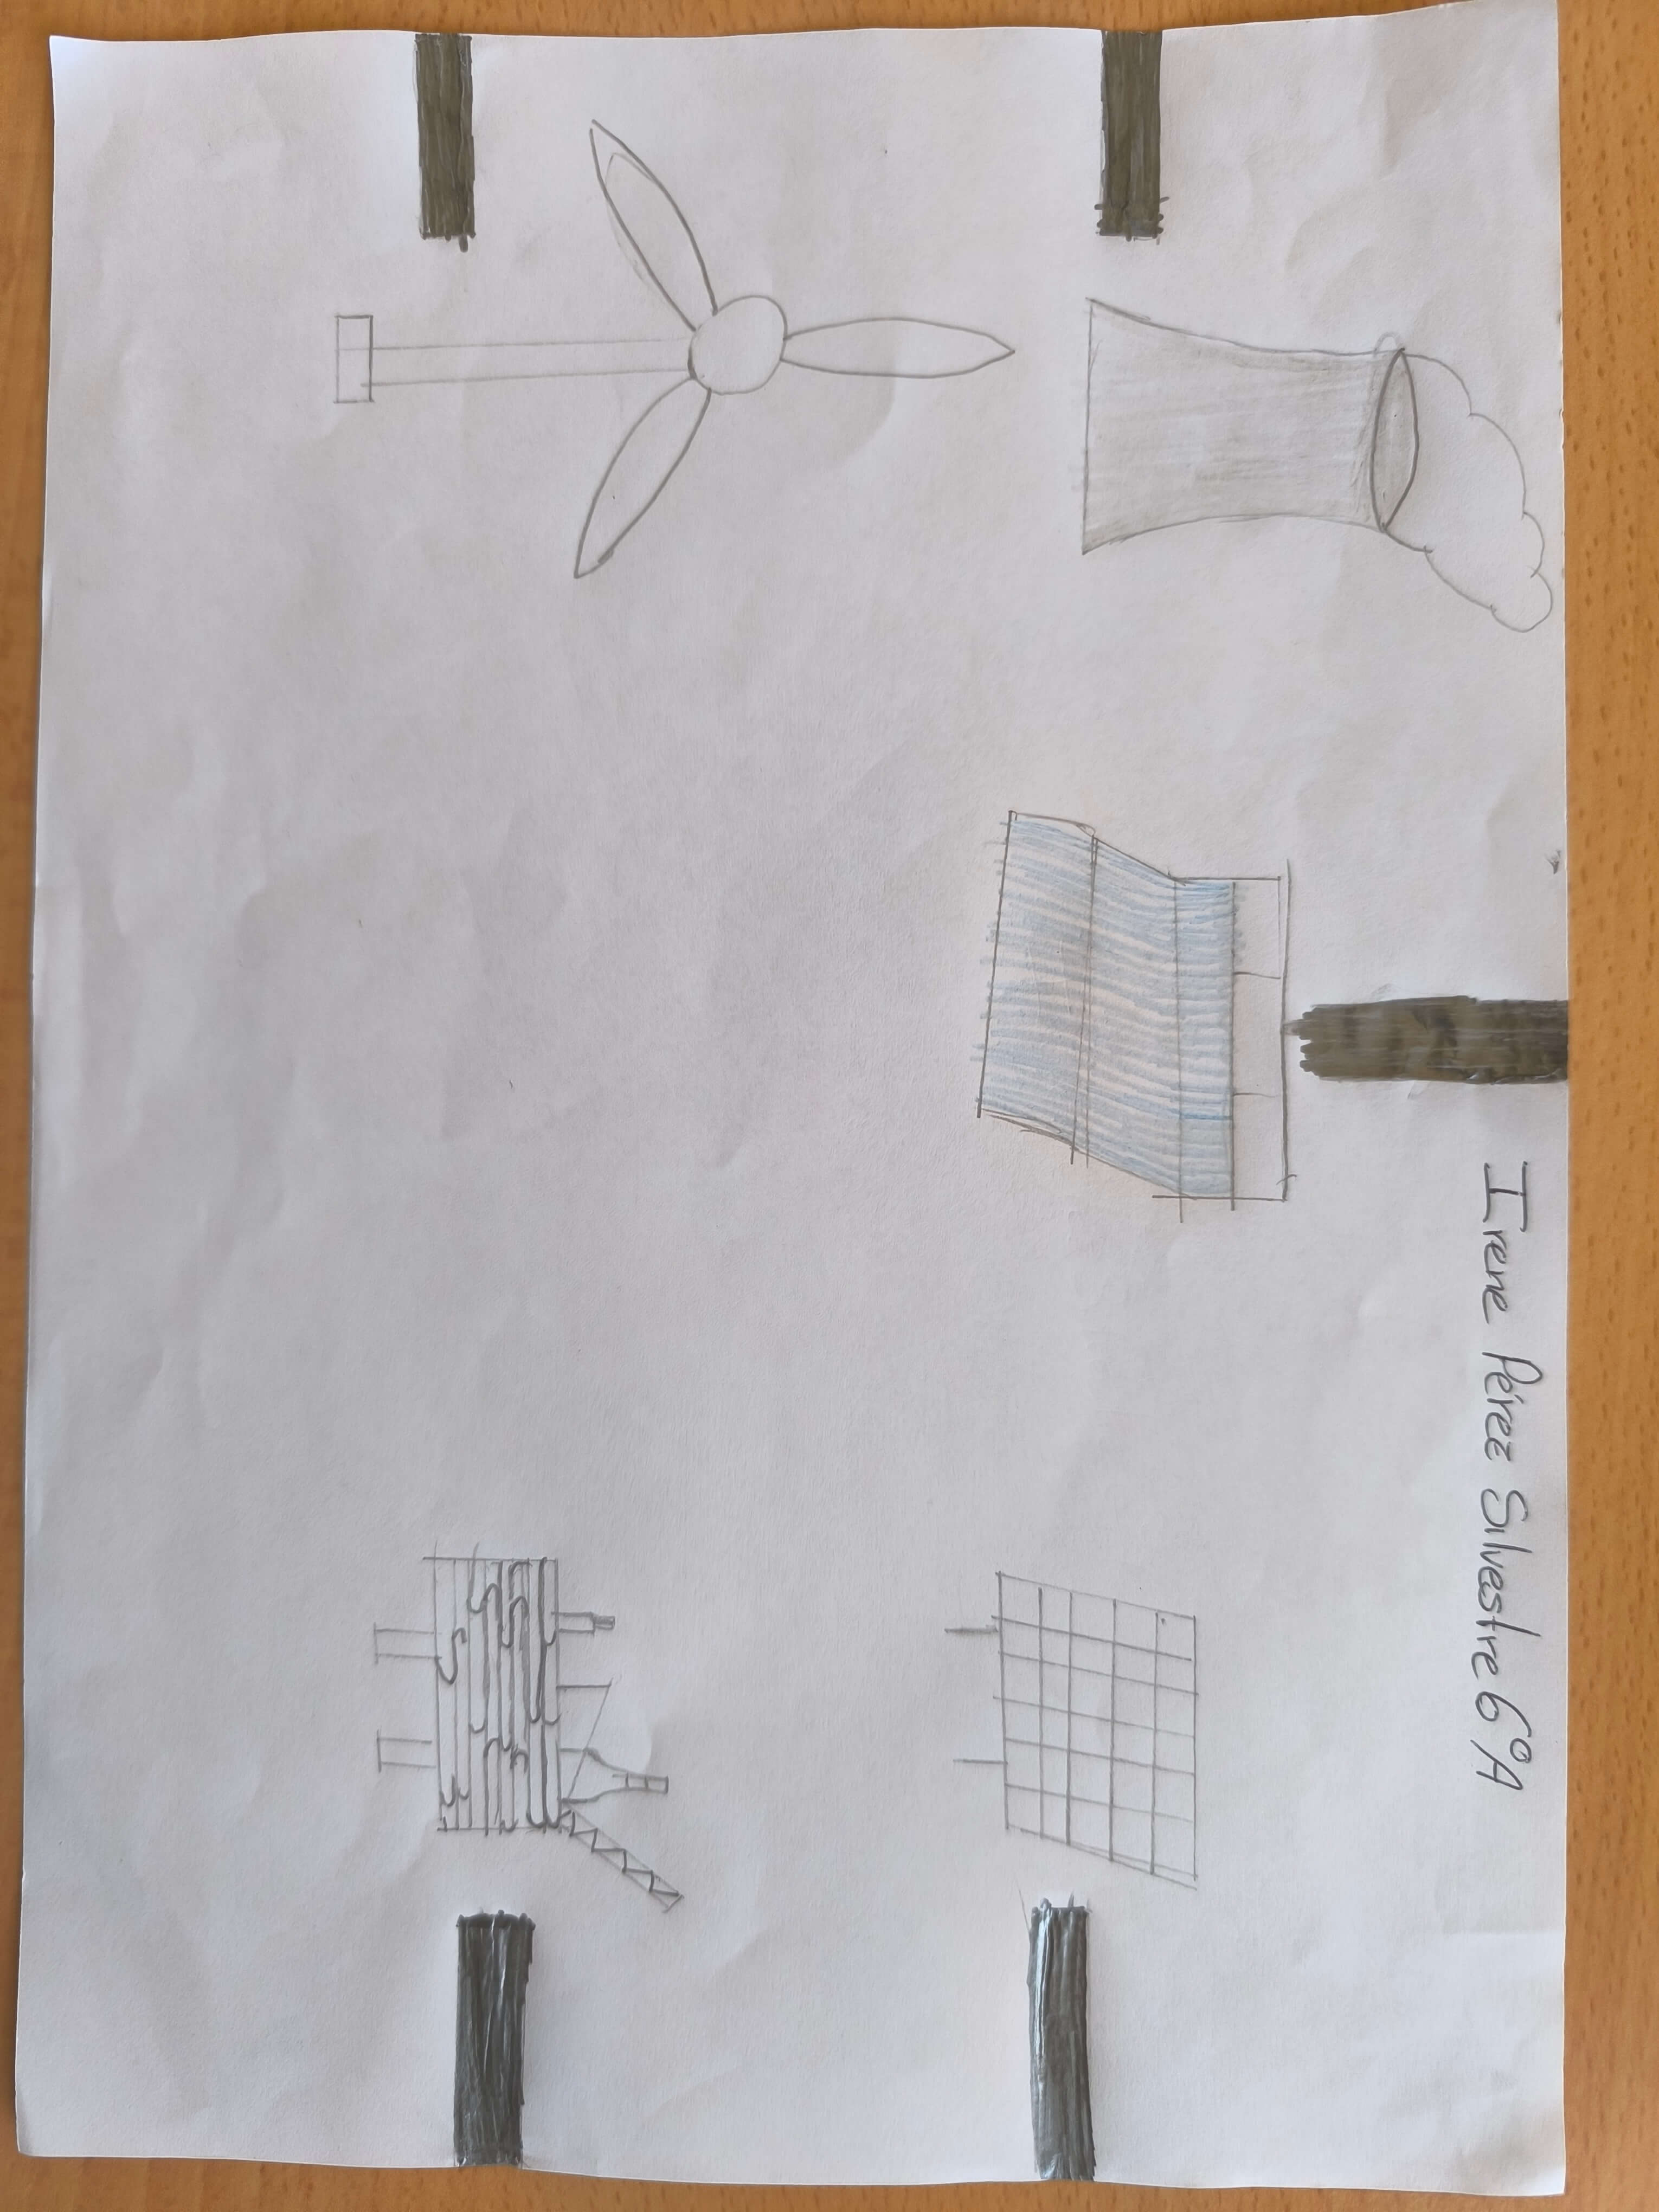 Irene Pérez Silvestre 6ºA